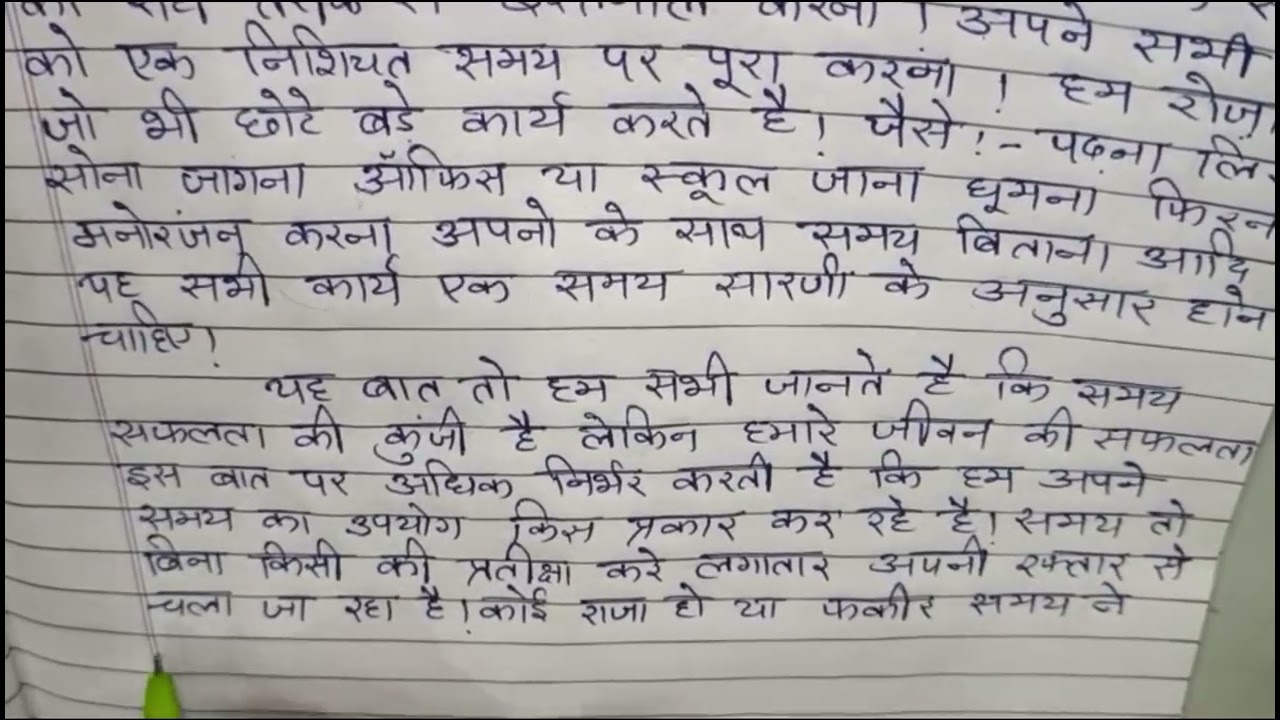 करना । अपने सभी
को एक निशियत समय पर पूरा करना । हम रोज़
जो भी छोटे बड़े कार्य करते है। जैसे :- पढ़ना
सोना जागना ऑफिस या स्कूल जाना घूमना
मनोरंजन करना अपनो के साथ समय बिताना आदि
यह सभी कार्य एक समय सारणी के अनुसार
चाहिए।
यह बात तो हम सभी जानते है कि समय
सफलता की कुंजी है लेकिन हमारे जीवन की सफलता
इस बात पर अधिक निर्भर करती है कि हम अपने
समय का उपयोग किस प्रकार कर रहे है। समय तो
बिना किसी की प्रतीक्षा करे लगातार अपनी रफ्तार से
चला जा रहा है। कोई राजा हो या फकीर समय ने